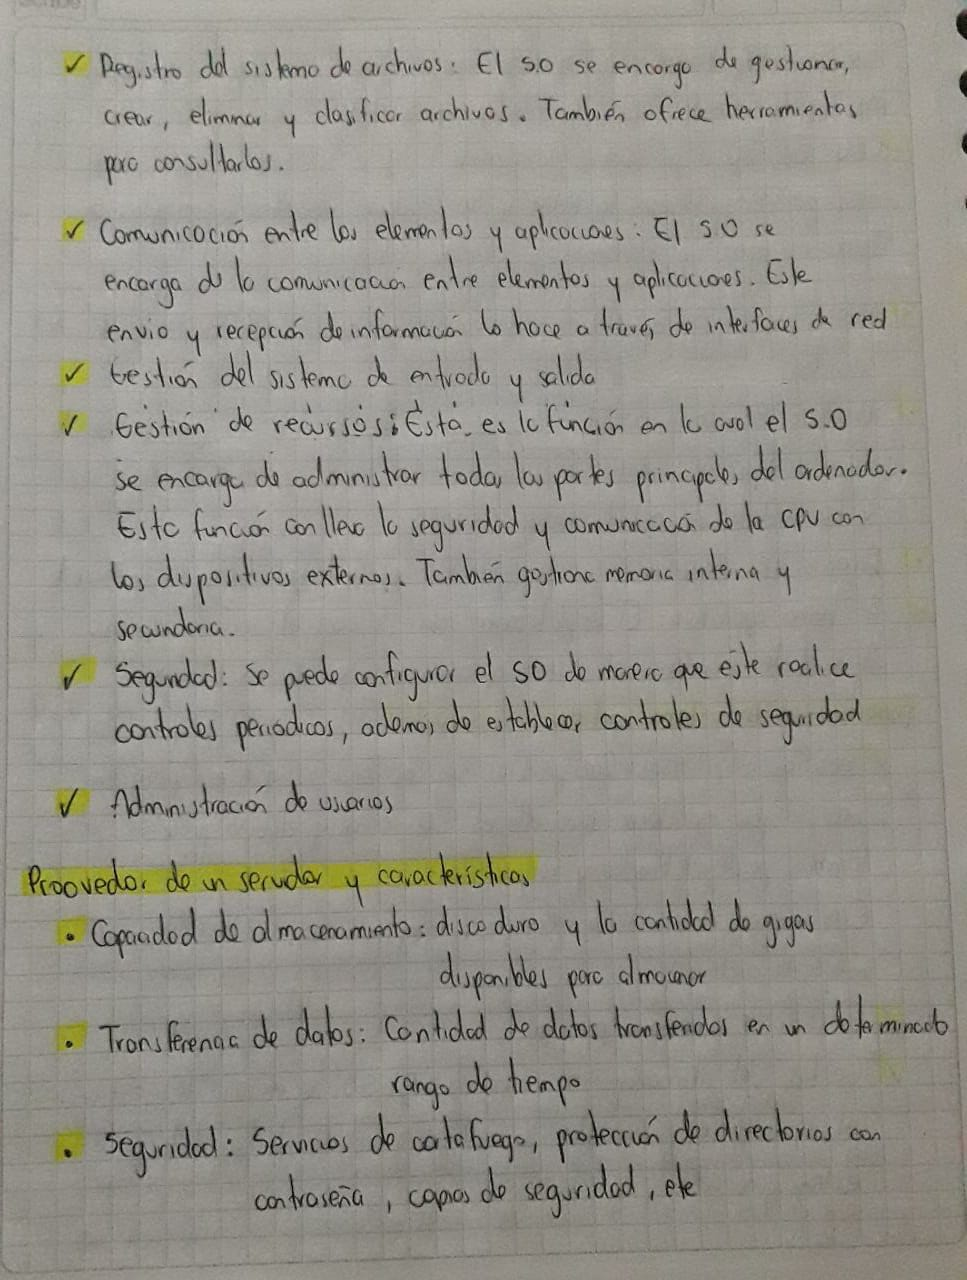 ✓ Registro del sistema de archivos: El S.O se encarga de gestionar,
crear, eliminar y clasificar archivos. También ofrece herramientas
para consultarlos.
✓ Comunicación entre los elementos y aplicaciones: El SO se
encarga de la comunicación entre elementos y aplicaciones. Este
envio y recepción de información lo hace a través de interfaces de red
✓ Gestión del sistema de entrada y salida
✓ Gestión de recursos: Está es la función en la cual el S.O
se encarga de administrar todas las partes principales del ordenador.
Esta función conlleva la seguridad y comunicación de la CPU con
los dispositivos externos. También gestiona memoria interna y
secundaria.
✓ Seguridad: Se puede configurar el SO de manera que este realice
controles periódicos, además de establecer controles de seguridad
✓ Administración de usuarios
Proovedor de un servidor y características
• Capacidad de almacenamiento: disco duro y la cantidad de gigas
disponibles para almacenar
• Transferencia de datos: Cantidad de datos transferidos en un determinado
rango de tiempo
• Seguridad: Servicios de cortafuego, protección de directorios con
contraseña, capas de seguridad, etc